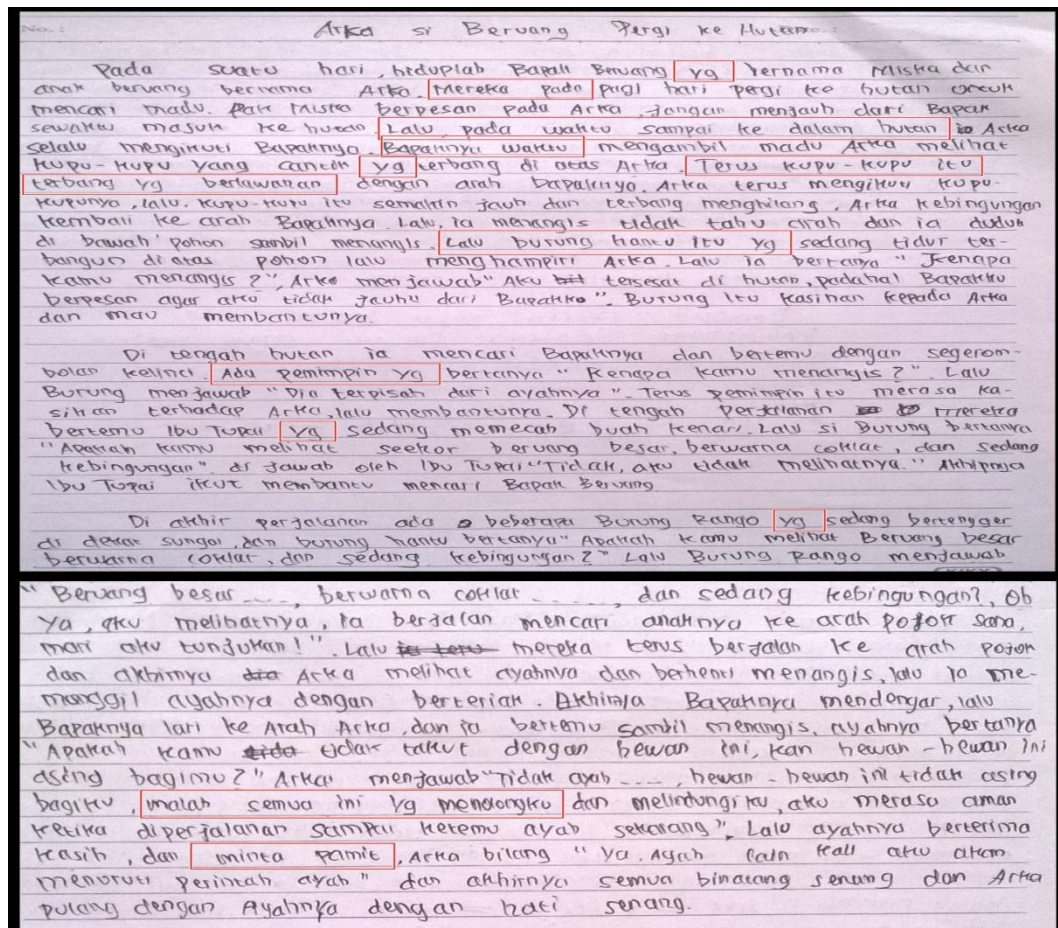 No. :
Arka si Beruang Pergi ke Hutan
Pada suatu hari, hiduplah Bapak Beruang yg bernama Mistra dan
anak beruang bernama Arka. Mereka pada pagi hari pergi ke hutan untuk
mencari madu. Pak Mistra berpesan pada Arka jangan menjauh dari Bapak
sewaktu masuk ke hutan. Lalu pada waktu sampai ke dalam hutan Arka
selalu mengikuti Bapaknya. Bapaknya waktu mengambil madu Arka melihat
kupu-kupu yang cantik yg terbang di atas Arka. Terus kupu-kupu itu
terbang yg berlawanan dengan arah bapaknya. Arka terus mengikuti kupu-
kupunya, lalu. kupu-kupu itu semakin jauh dan terbang menghilang. Arka kebingungan
kembali ke arah Bapaknya. Lalu, ia menangis tidak tahu arah dan ia duduk
di bawah pohon sambil menangis. Lalu burung hantu itu yg sedang tidur ter-
bangun di atas pohon lalu menghampiri Arka. Lalu ia bertanya "Kenapa
kamu menangis ?", Arka menjawab "Aku tersesat di hutan, padahal Bapakku
berpesan agar aku tidak jauhu dari Bapakku". Burung itu kasihan kepada Arka
dan mau membantunya.
Di tengah hutan ia mencari Bapaknya dan bertemu dengan segerom-
bolan kelinci. Ada pemimpin yg bertanya "Kenapa kamu menangis ?" Lalu
Burung menjawab "Dia terpisah dari ayahnya". Terus pemimpin itu merasa ka-
sihan terhadap Arka, lalu membantunya. Di tengah perjalanan mereka
bertemu Ibu Tupai yg sedang memecah buah kenari. Lalu si Burung bertanya
"Apakah kamu melihat seekor beruang besar, berwarna coklat, dan sedang
kebingungan". di jawab oleh Ibu Tupai "Tidak, aku tidak melihatnya." Akhirnya
Ibu Tupai ikut membantu mencari Bapak Beruang
Di akhir perjalanan ada beberapa Burung Bango yg sedang bertengger
di dekat sungai, dan burung hantu bertanya "Apakah kamu melihat Beruang besar
berwarna coklat, dan sedang kebingungan ?" Lalu Burung Bango menjawab
"Beruang besar...., berwarna coklat ....., dan sedang kebingungan?, Oh
ya, aku melihatnya, ia berjalan mencari anaknya ke arah pojok sana,
mari aku tunjukan!". Lalu mereka terus berjalan ke arah pojok
dan akhirnya Arka melihat ayahnya dan berhenti menangis, lalu ia me-
manggil ayahnya dengan berteriak. Akhirnya Bapaknya mendengar, lalu
Bapaknya lari ke Arah Arka, dan ia bertemu sambil menangis, ayahnya bertanya
"Apakah kamu tidak takut dengan hewan ini, kan hewan-hewan ini
asing bagimu ?" Arka menjawab "Tidak ayah ...., hewan-hewan ini tidak asing
bagiku, malah semua ini yg menolongku dan melindungiku, aku merasa aman
ketika diperjalanan sampai ketemu ayah sekarang". Lalu ayahnya berterima
kasih, dan minta pamit, Arka bilang "Ya. Ayah lain kali aku akan
menuruti perintah ayah" dan akhirnya semua binatang senang dan Arka
pulang dengan Ayahnya dengan hati senang.